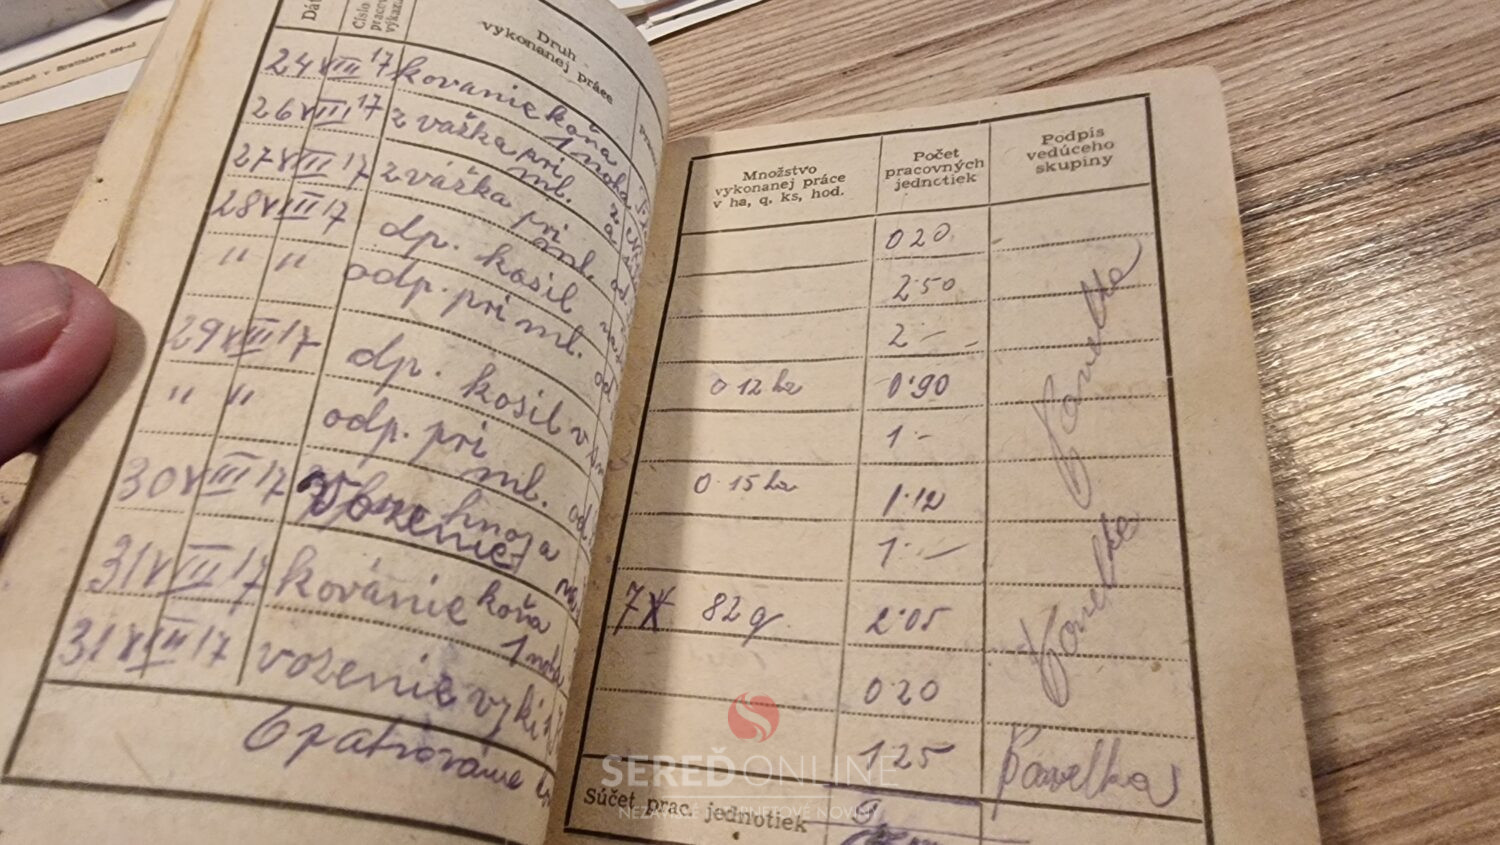 Číslo
pracov
výkazu
Druh
vykonanej práce
24 VIII 17 kovanie koňa
1 noha
26 VIII 17 zvážka pri
ml.
27 VIII 17 zvážka pri
ml.
28 VIII 17 dp. kosil
" " odp. pri ml.
29 VIII 17 dp. kosil v
" " odp. pri
ml.
30 VIII 17 Vozenie hnoja
31 VIII 17 kovánie koňa
1 noha
31 VIII 17 vozenie vyki
Opatrovanie
Množstvo
vykonanej práce
v ha, q, ks, hod.
Počet
pracovných
jednotiek
Podpis
vedúceho
skupiny
0 20
2·50
2·—
0·12 ha 0·90
1·—
0·15 ha 1·12
1·—
82 q. 2·05
0 20
1 25
Pavelka
Pavelka
Pavelka
Súčet prac. jednotiek
SEREĎ ONLINE
NEZÁVISLÉ INTERNETOVÉ NOVINY